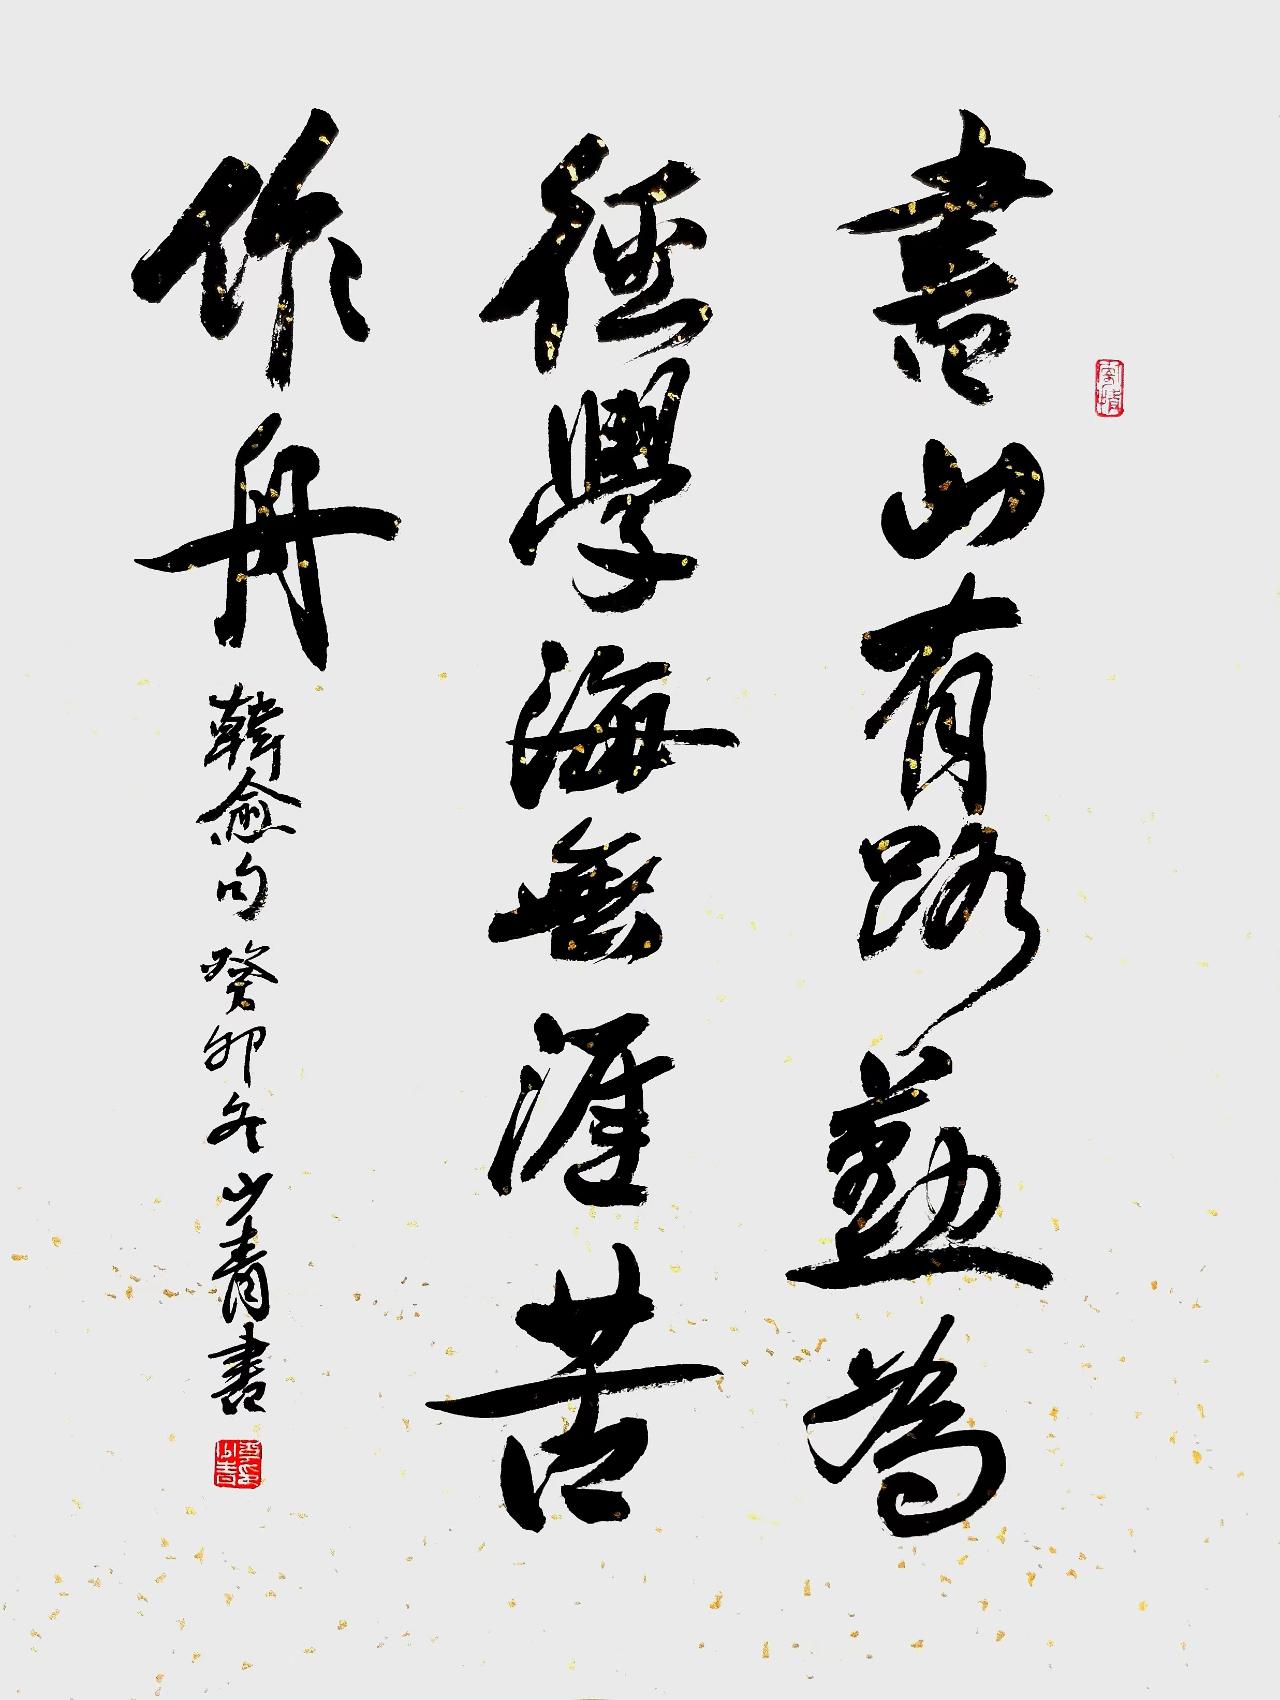 書山有路勤為
徑學海無涯苦
作舟
韓愈句癸卯冬山青書